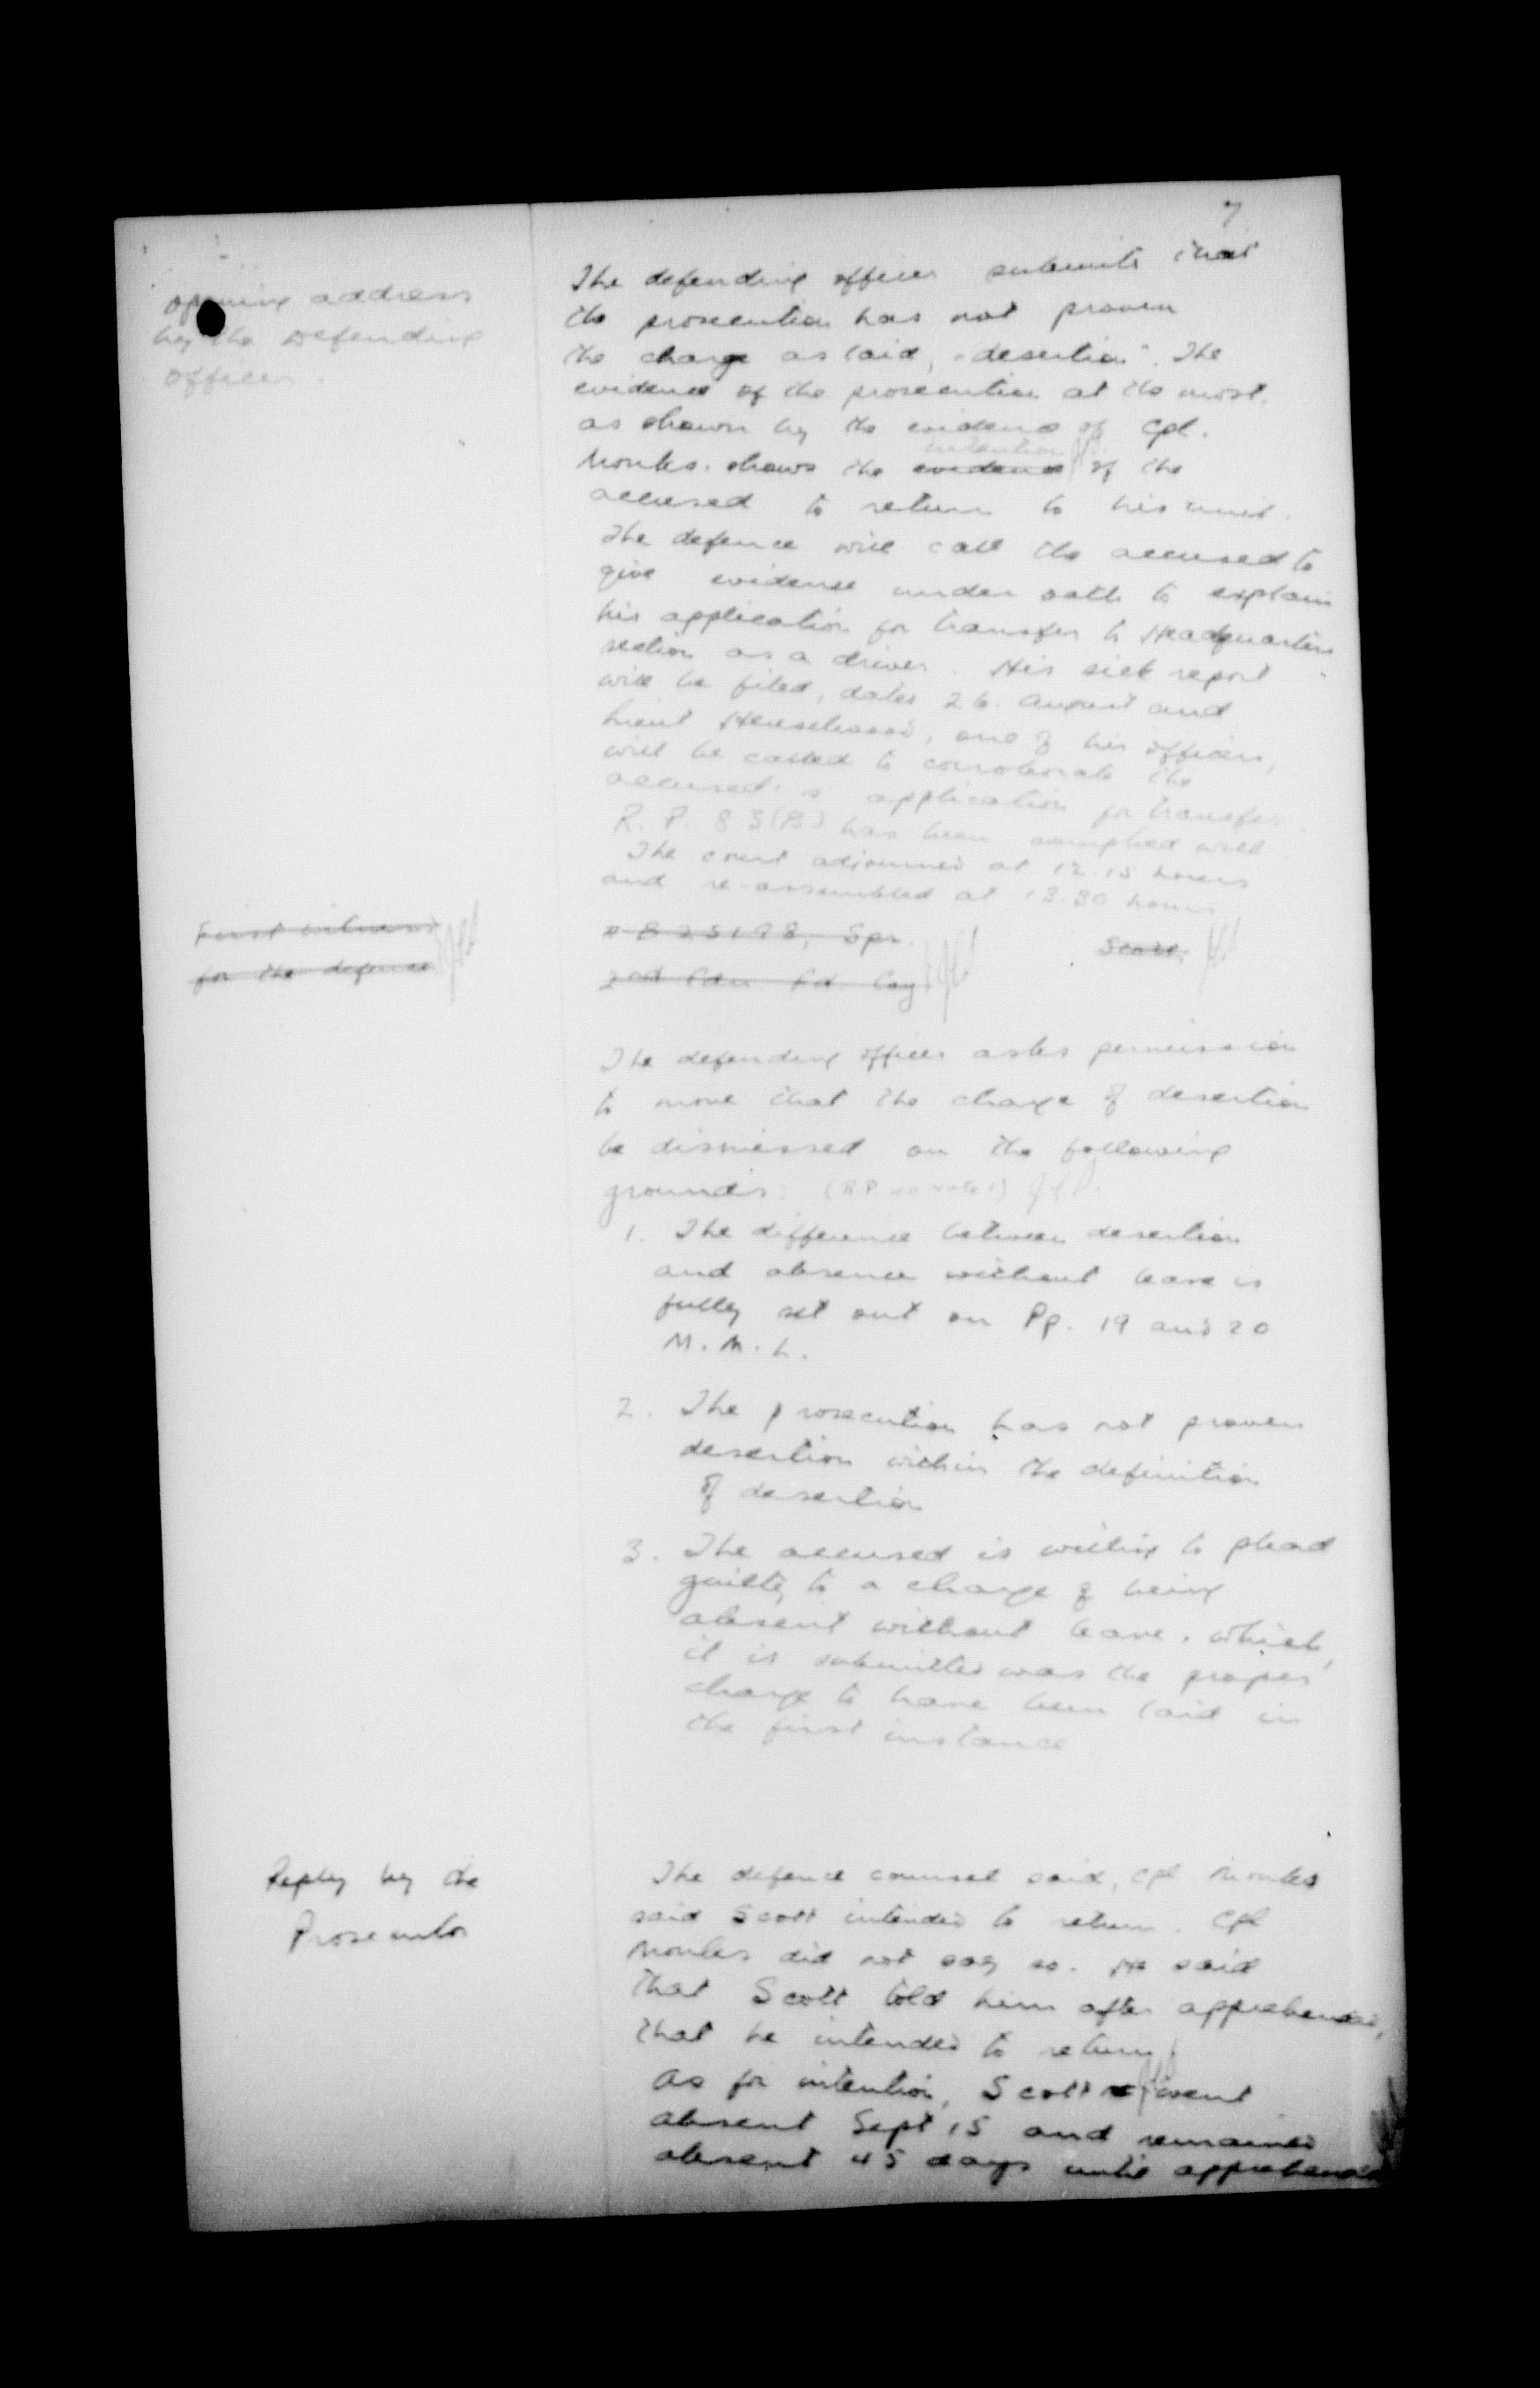 7
opening address
by the Defending
officer.
The defending officer submits that
the prosecution has not proven
the charge as laid, "desertion". The
evidence of the prosecution at the most.
as shown by the evidence of Cpl.
intention
Monks. shows the evidence of the
accused to return to his unit.
The defence will call the accused to
give evidense under oath to explain
his application for transfer to Headquarters
section as a driver. His sick report
will be filed, dated 26. August and
Lieut, one of his officers,
will be called to corroborate the
accused's application for transfer.
R. P. 83(B) has been complied with
The court adjourned at 12.15 hours
and re-assembled at 13.30 hours
First witness
for the defence
B 25198, Spr. Scott,
2nd Cdn Fd. Coy
The defending officer asks permission
to move that the charge of desertion
be dismissed on the following
grounds: (R P
1. The difference between desertion
and absence without leave is
fully set out on Pp. 19 and 20
M. M. L.
2. The prosecution has not proven
desertion within the definition
of desertion
3. The accused is willing to plead
guilty to a charge of being
absent without leave. which,
it is submitted was the proper
charge to have been laid in
the first instance
Reply by the
Prosecutor
The defence counsel said, Cpl Monks
said Scott intended to return. Cpl
Monks did not say so. He said
that Scott told him after apprehended,
that he intended to return.
As for intention, Scott went
absent Sept 15 and remained
absent 45 days until apprehended